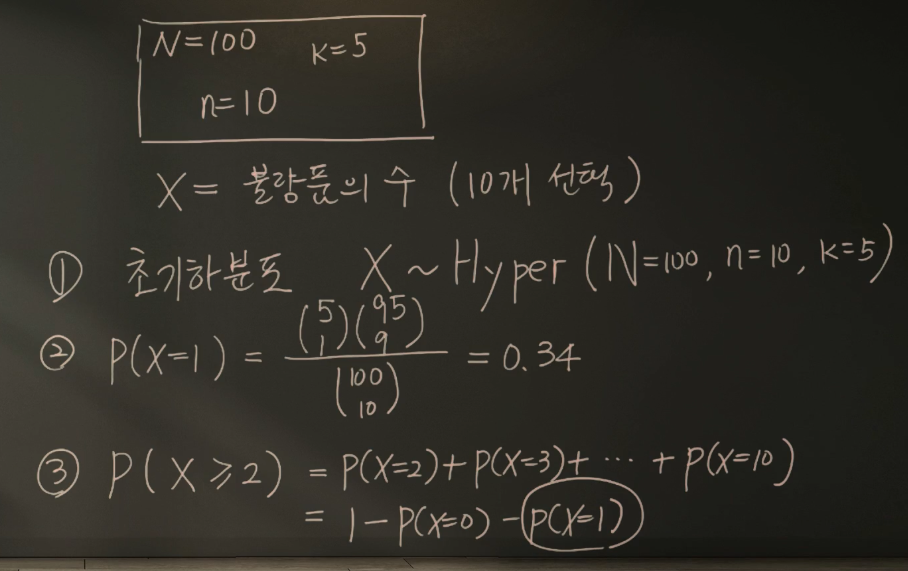 N=100 K=5
n=10
X= 불량품의 수 (10개 선택)
① 초기하분포 X ~ Hyper (N=100, n=10, K=5)
② P(X=1) = \frac{\binom{5}{1}\binom{95}{9}}{\binom{100}{10}} = 0.34
③ P(X≥2) = P(X=2)+P(X=3)+ ⋯ + P(X=10)
= 1-P(X=0)-P(X=1)